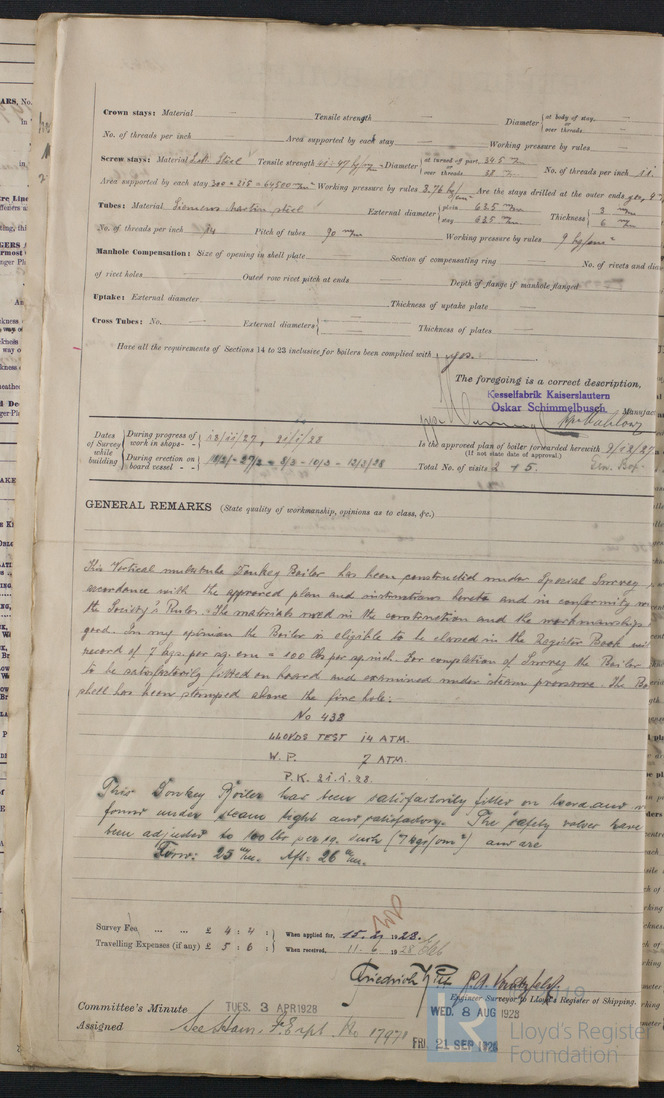 Crown stays: Material — Tensile strength — Diameter { at body of stay, — or over threads. —
No. of threads per inch — Area supported by each stay — Working pressure by rules —
Screw stays: Material Steel Tensile strength 41-47 kg/mm² Diameter { at turned off part, 34.5 mm or over threads 38 mm No. of threads per inch 11
Area supported by each stay 300 × 215 = 64500 mm² Working pressure by rules 8.76 kg/cm² Are the stays drilled at the outer ends yes,
Tubes: Material Siemens Martin steel External diameter { plain 63.5 mm stay 63.5 mm Thickness { 3 mm 6 mm
No. of threads per inch Pitch of tubes 90 mm Working pressure by rules 9 kg/cm²
Manhole Compensation: Size of opening in shell plate — Section of compensating ring — No. of rivets and dia
of rivet holes — Outer row rivet pitch at ends — Depth of flange if manhole flanged
Uptake: External diameter — Thickness of uptake plate —
Cross Tubes: No. — External diameters { — Thickness of plates —
Have all the requirements of Sections 14 to 23 inclusive for boilers been complied with yes.
The foregoing is a correct description,
Kesselfabrik Kaiserslautern
Oskar Schimmelbusch. Manufac
Dates of Survey while building { During progress of work in shops - - 23/12/27, 21/1/28
During erection on board vessel - - 27/2 - 8/3 - 10/3 - 12/3/28
Is the approved plan of boiler forwarded herewith 9/12/27
(If not state date of approval.)
Total No. of visits 2 + 5.
GENERAL REMARKS (State quality of workmanship, opinions as to class, &c.)
This Vertical multitube Donkey Boiler has been constructed under Special Survey
accordance with the approved plan and instructions hereto and in conformity
the Society's Rules. The materials used in the construction and the workmanship
good. In my opinion the Boiler is eligible to be classed in the Register Book
record of 7 kgs. per sq. cm = 100 lbs per sq. inch. For completion of Survey the Boiler
to be satisfactorily fitted on board and examined under steam pressure. The
shell has been stamped above the fire hole:
No 438
LLOYDS TEST 14 ATM.
W. P. 7 ATM.
P.K. 21.1.28.
This Donkey Boiler has been satisfactorily fitted on board and
found under steam tight and satisfactory. The safety valves have
been adjusted to 100 lbs per sq. inch (7 kgs/cm²) and are
Forw: 25 mm. Aft: 26 mm.
Survey Fee ... ... £ 4 : 4 : When applied for, 15. 1928.
Travelling Expenses (if any) £ 5 : 6 : When received, 11-6 1928
Engineer Surveyor to Lloyd's Register of Shipping.
Committee's Minute TUES. 3 APR 1928 WED. 8 AUG 1928
Assigned See Ham. F.E. rpt. No 17971 FRI. 21 SEP 1928
LR
Lloyd's Register
Foundation